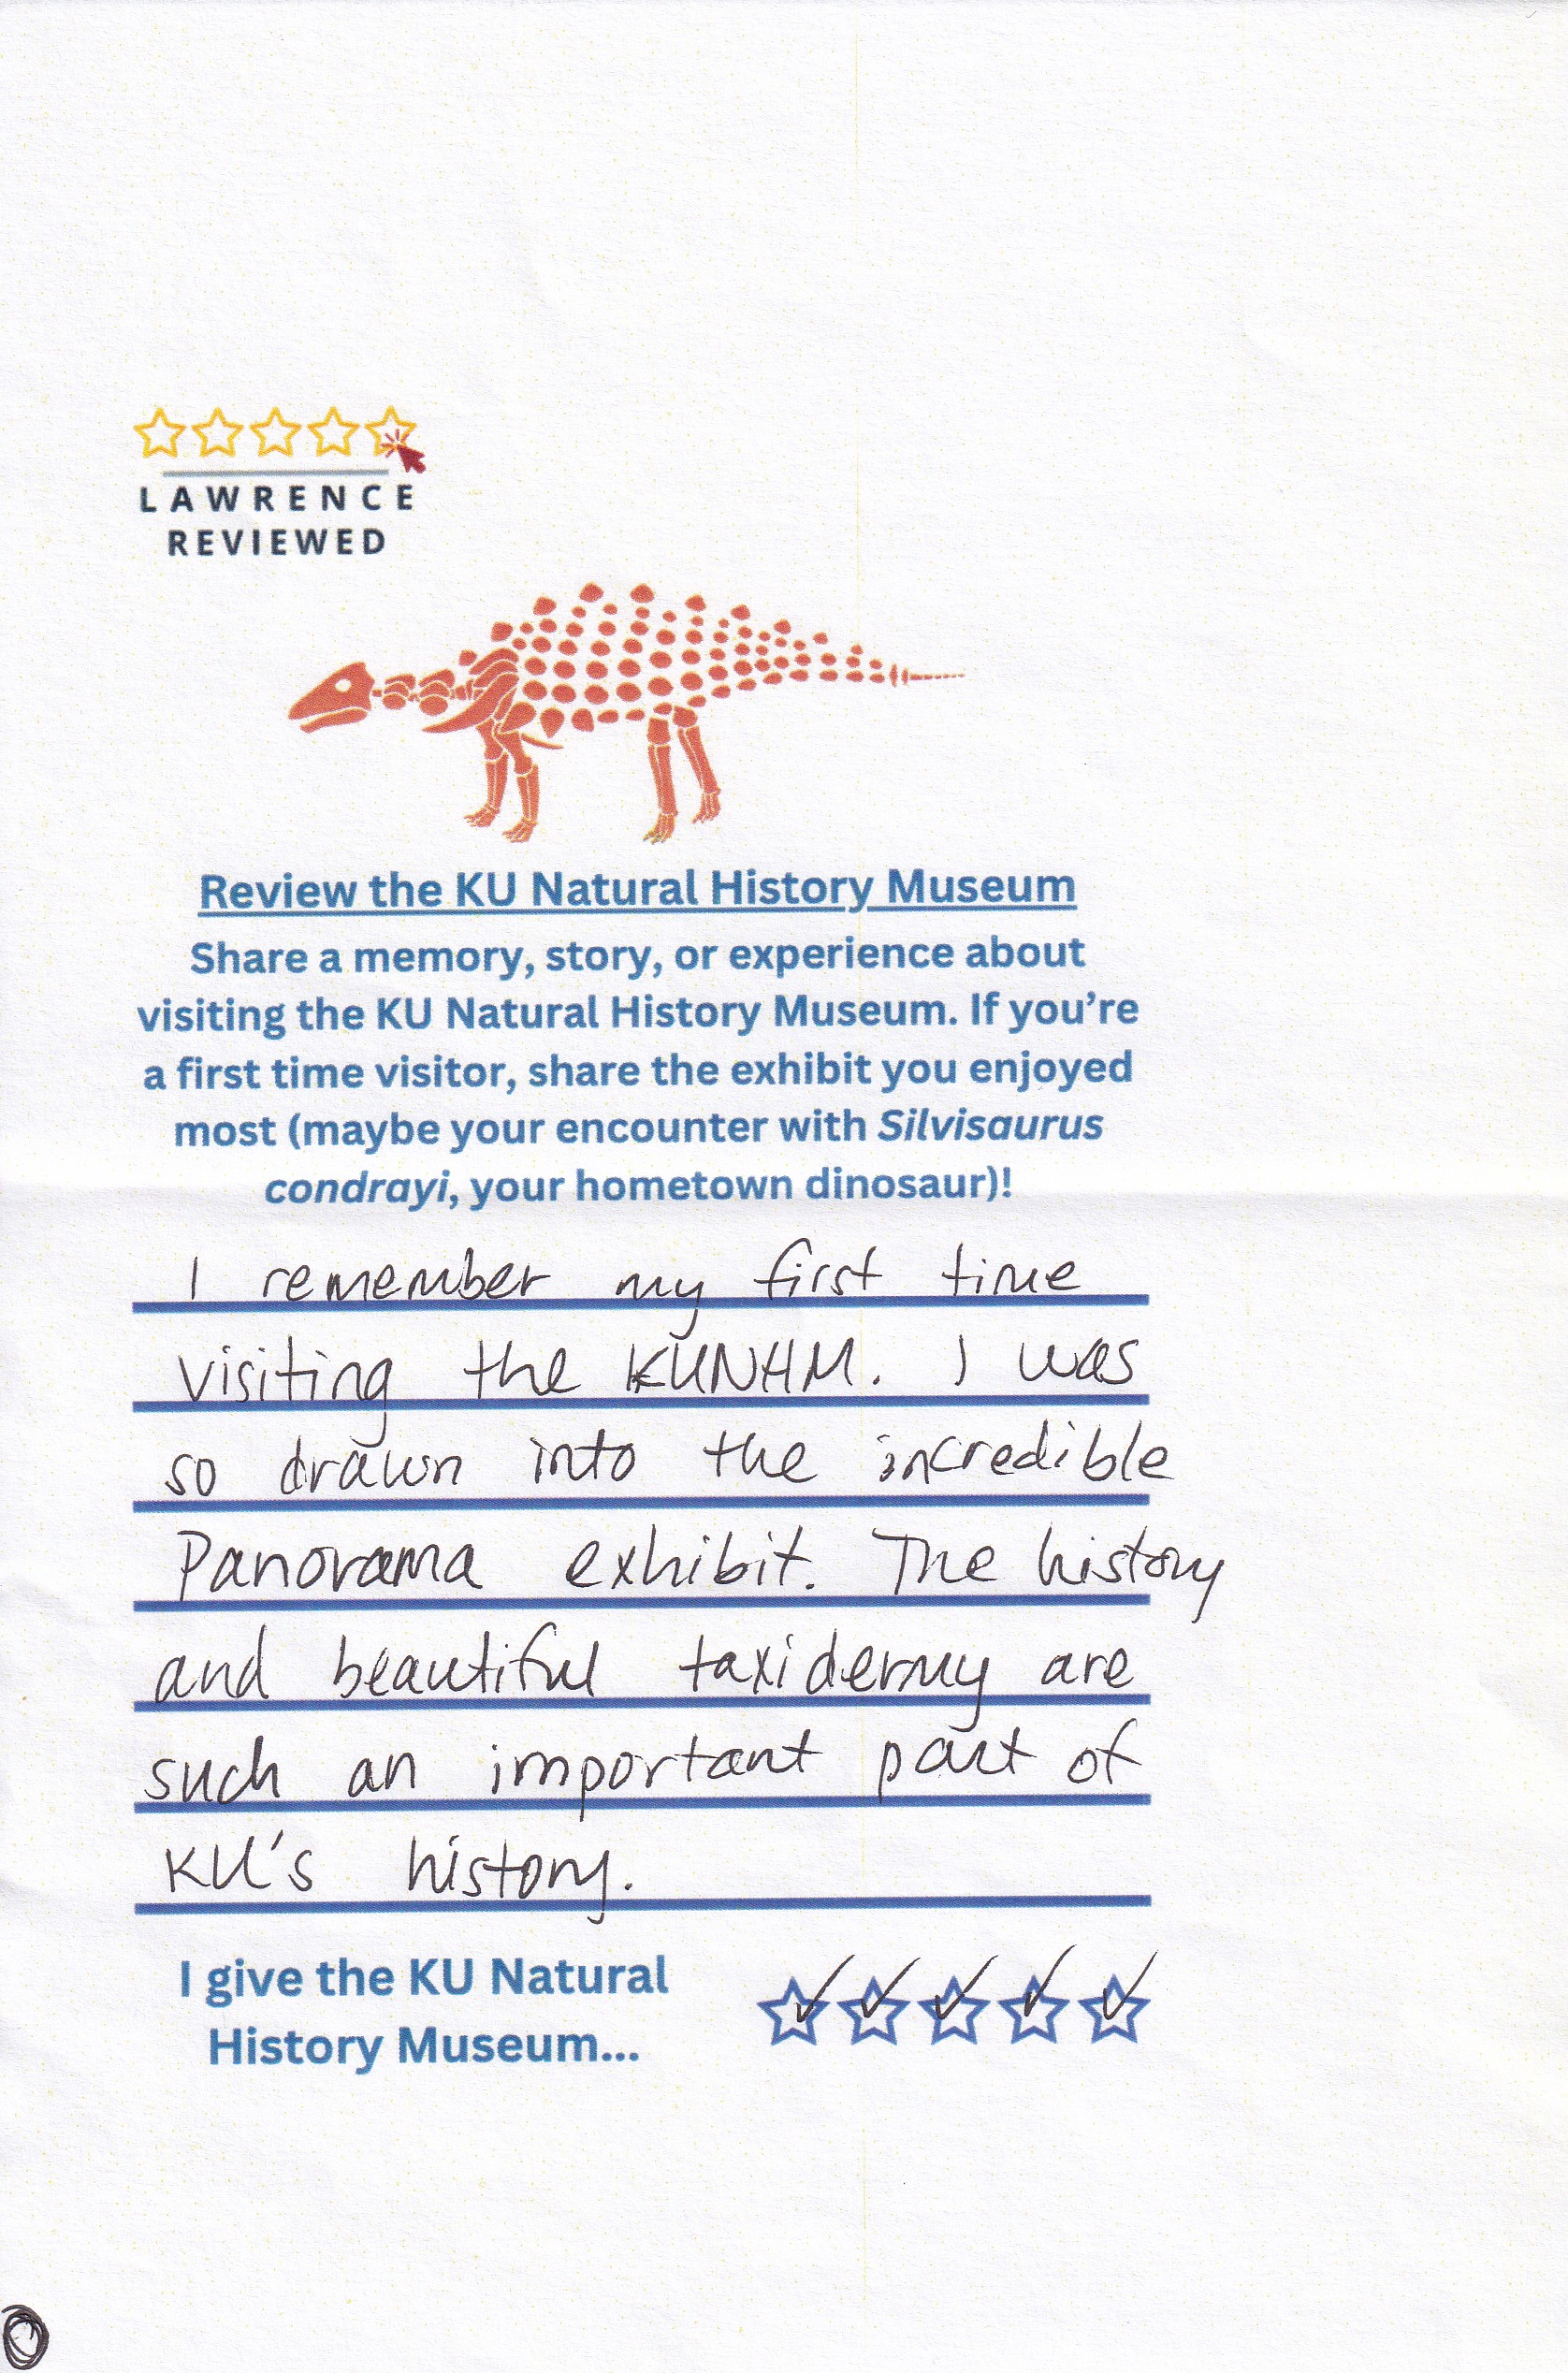 LAWRENCE
REVIEWED
Review the KU Natural History Museum
Share a memory, story, or experience about
visiting the KU Natural History Museum. If you're
a first time visitor, share the exhibit you enjoyed
most (maybe your encounter with Silvisaurus
condrayi, your hometown dinosaur)!
I remember my first time
visiting the KUNHM. I was
so drawn into the incredible
Panorama exhibit. The history
and beautiful taxidermy are
such an important part of
KU's history.
I give the KU Natural
History Museum...